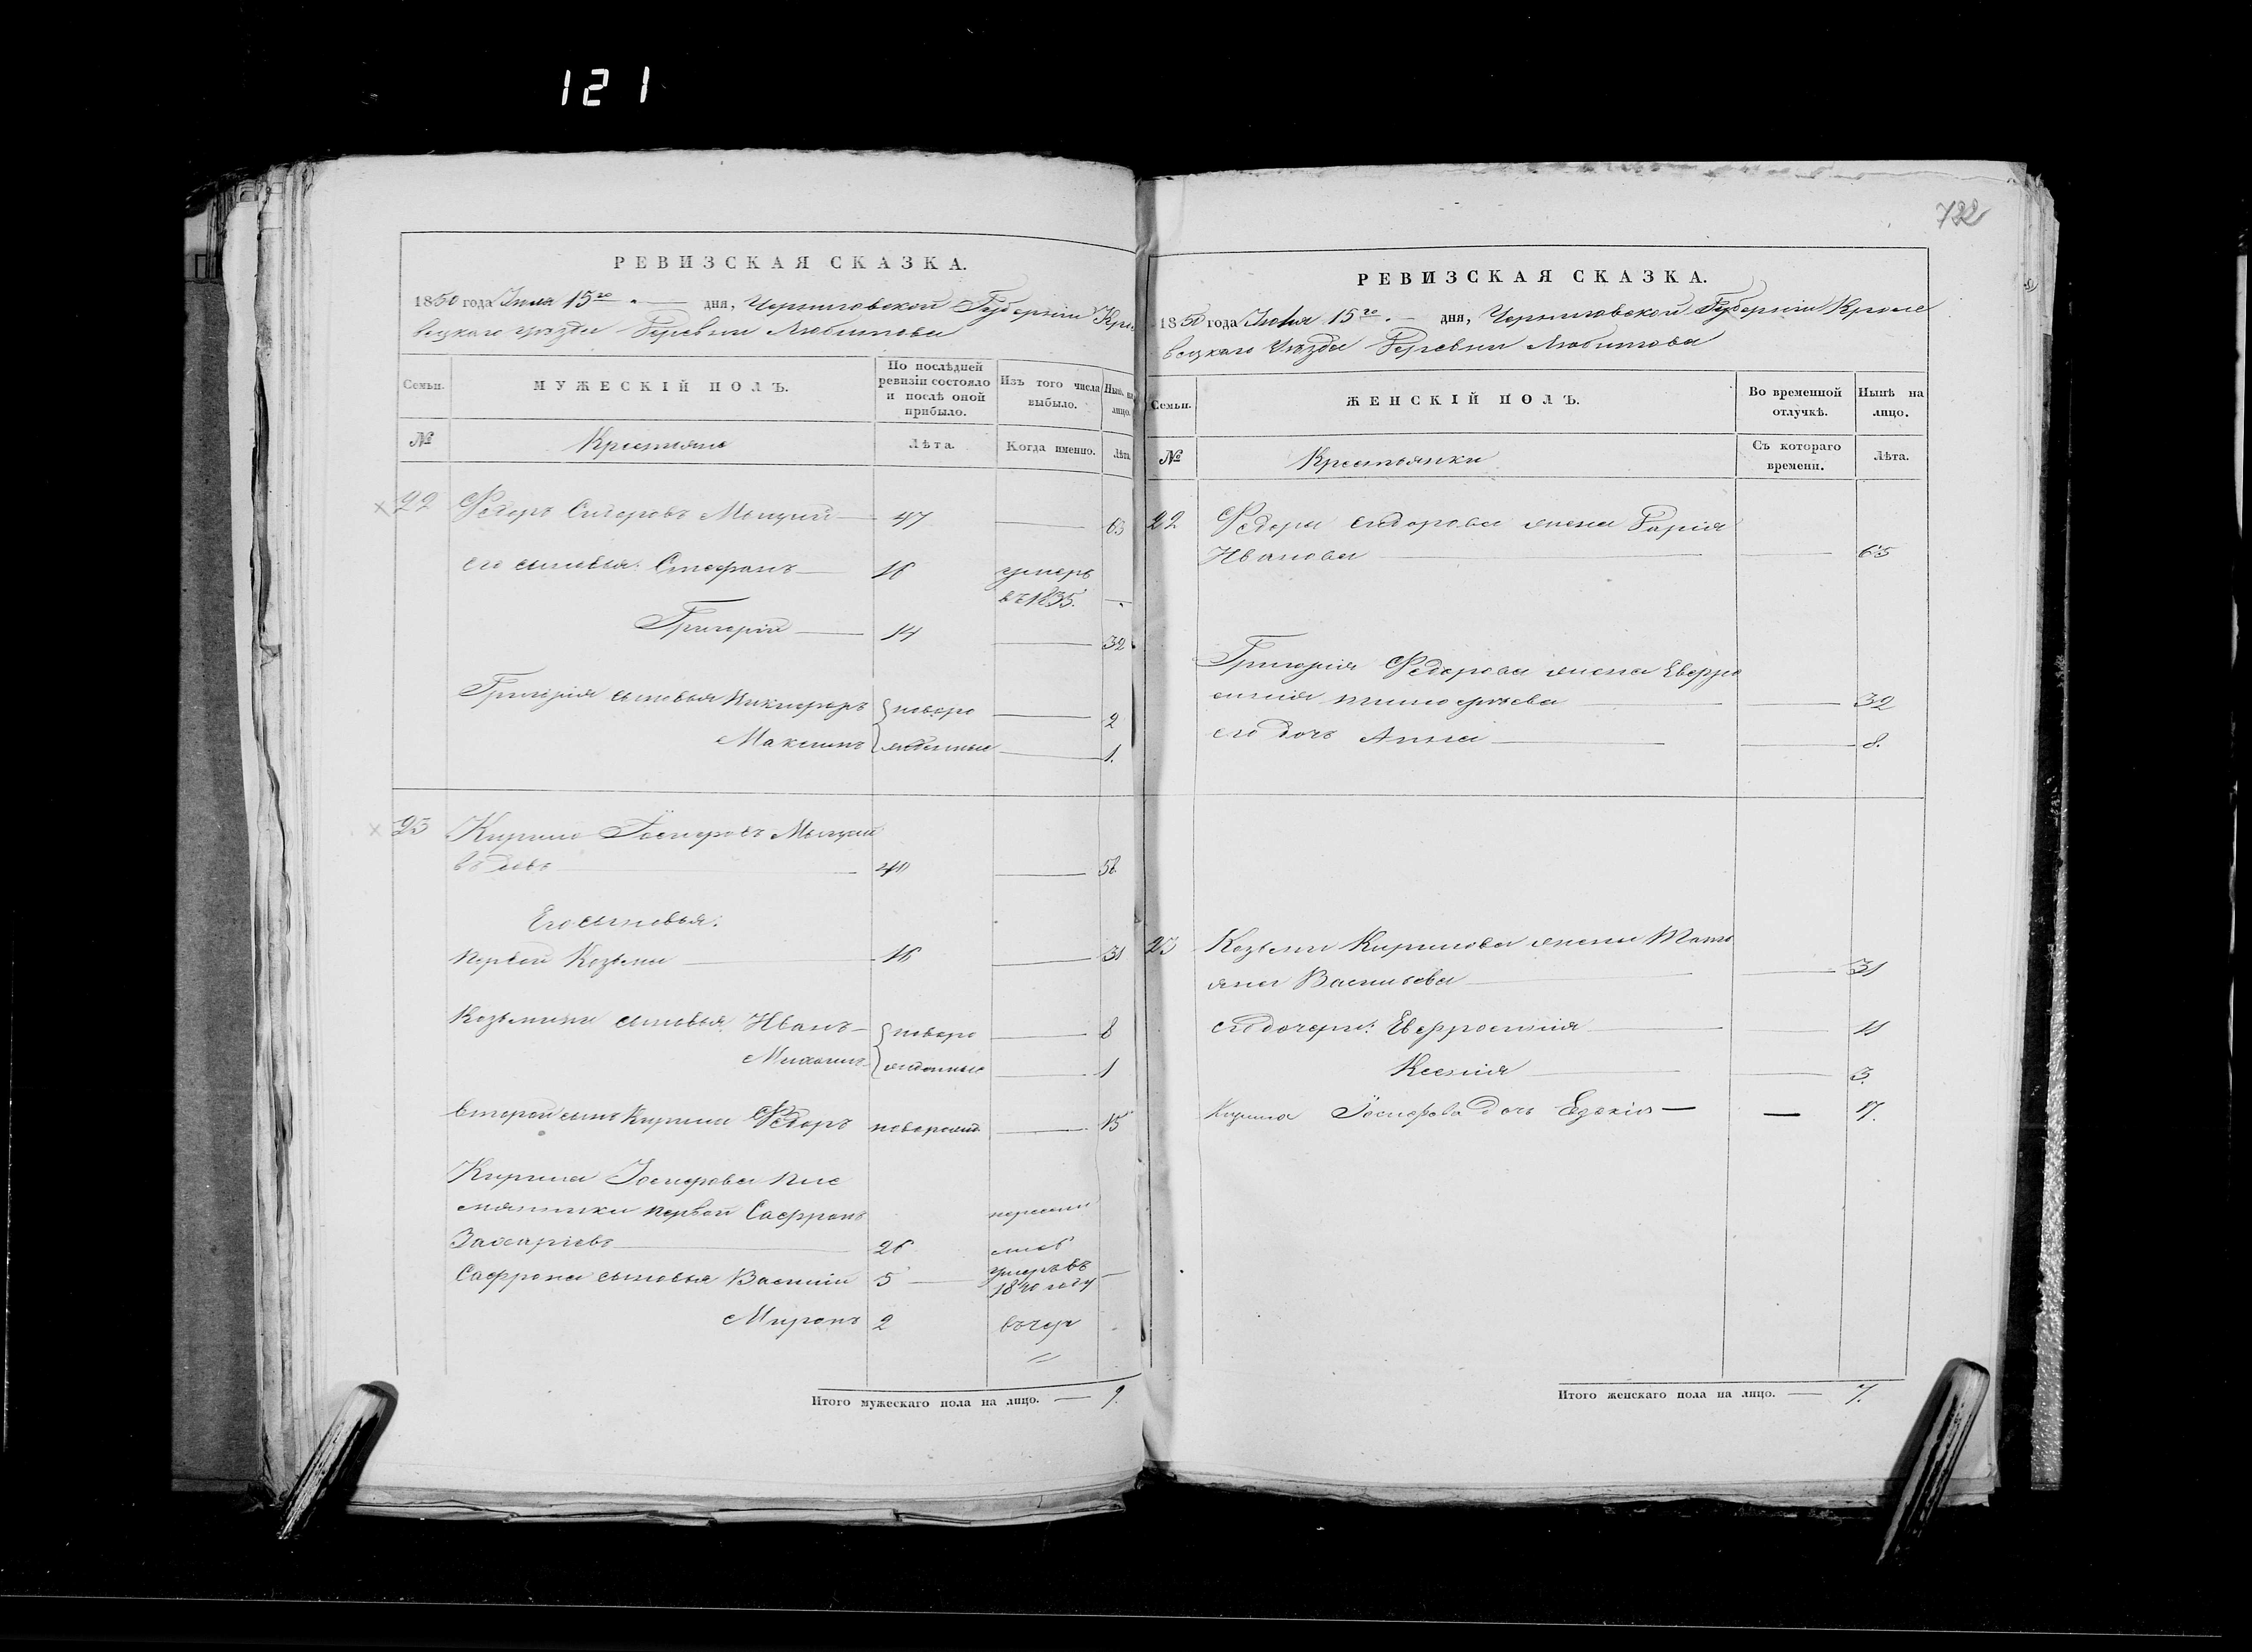 121
722
РЕВИЗСКАЯ СКАЗКА.
1850 года Июля 15го дня, Черниговской Губерніи Кро
вецкаго уѣзда Деревни Любитова
Семьи.
МУЖЕСКІЙ ПОЛЪ.
По послѣдней ревизіи состояло и послѣ оной прибыло.
Изъ того числа выбыло.
Нынѣ на лицо.
№
Крестьяне
Лѣта.
Когда именно.
Лѣта
22 Федоръ Сидоровъ 47 — 63
его сыновья: Стефанъ — 16 умеръ
въ 1835. —
Григорій — 14 — 32
Григорія сыновья Никифоръ новоро — 2
Максимъ жденные — 1.
23 Кирило Іосифовъ
вдовъ — 40 — 56
Его сыновья:
первой Козьма — 16 — 31
Козьмины сыновья Иванъ — новоро — 8
Михаилъ жденные — 1
второй сынъ Кирила Федоръ новорожд — 15
Кирила Іосифова пле
мянники первой Сафронъ
Захаріевъ — 26
Сафрона сыновья Василій 5 — умеръ въ
1840 году —
Миронъ 2
Итого мужескаго пола на лицо. — 9.
РЕВИЗСКАЯ СКАЗКА.
1850 года Июля 15го дня, Черниговской Губерніи Кроле
вецкаго Уѣзда Деревни Любитова
Семьи.
ЖЕНСКІЙ ПОЛЪ.
Во временной отлучкѣ.
Нынѣ на лицо.
№
Крестьянки
Съ котораго времени.
Лѣта.
22 Федора Сидорова жена Дарія
Иванова — — 65
Григорія Федорова жена Евфро
синія Тимофѣева — — 32
его дочь Анна — — 8.
23 Козьмы Кирилова жена Таті
яна Васильева — — 31
его дочери: Евфросинія — — 11
Ксенія — — 3.
Кирила Іосифова дочь Евдокія — — 17.
Итого женскаго пола на лицо. — 7.